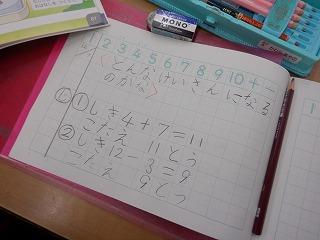 MONO
2 3 4 5 6 7 8 9 10 + -
〈どんなけいさんになる
のかな〉
① しき 4 + 7 = 11
こたえ 11とう
② しき 12 - 3 = 9
こたえ 9とう